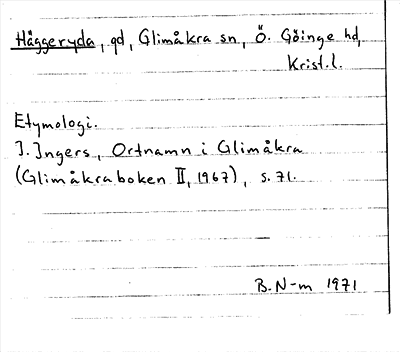 Häggeryda, gd, Glimåkra sn, Ö. Göinge hd,
Krist. l.
Etymologi.
I. Ingers, Ortnamn i Glimåkra
(Glimåkraboken II, 1967), s. 71.
B. N-m 1971